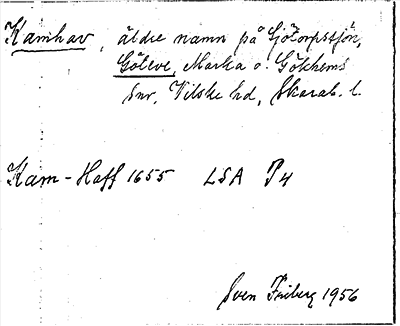 Kamhav, äldre namn på Sjötorpssjön,
Göteve, Marka o. Gökhems
snr, Vilske hd, Skarab. l.
Kam-Haff 1655 LSA P4
Sven Friberg 1956